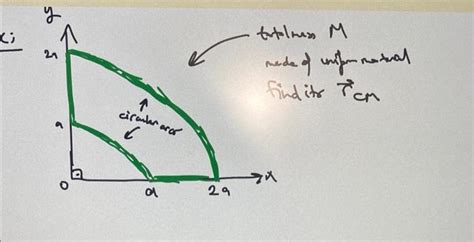 y
x;
total mass M
made of uniform material
find its r⃗CM
2a
circular arcs
a
0
a
2a
x